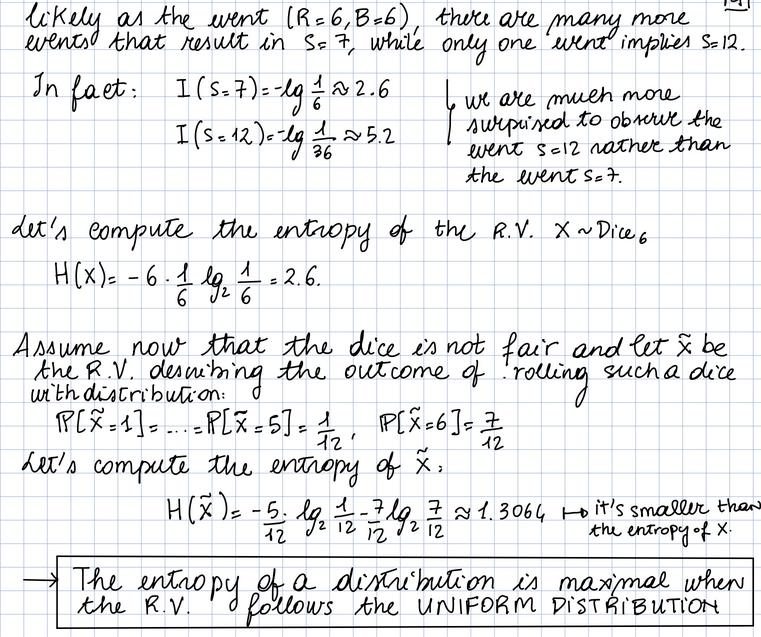 likely as the event (R=6, B=6), there are many more
events that result in S=7, while only one event implies S=12.
In fact: I(S=7)=-lg 1/6 ≈ 2.6
I(S=12)=-lg 1/36 ≈ 5.2
we are much more
surprised to observe the
event S=12 rather than
the event S=7.
Let's compute the entropy of the R.V. X ~ Dice₆
H(X)= -6 · 1/6 lg₂ 1/6 = 2.6.
Assume now that the dice is not fair and let X̃ be
the R.V. describing the outcome of rolling such a dice
with distribution:
ℙ[X̃=1]= ... = ℙ[X̃=5]= 1/12, ℙ[X̃=6]= 7/12
Let's compute the entropy of X̃:
H(X̃)= -5/12 · lg₂ 1/12 - 7/12 lg₂ 7/12 ≈ 1.3064 ↦ it's smaller than
the entropy of X.
→ The entropy of a distribution is maximal when
the R.V. follows the UNIFORM DISTRIBUTION